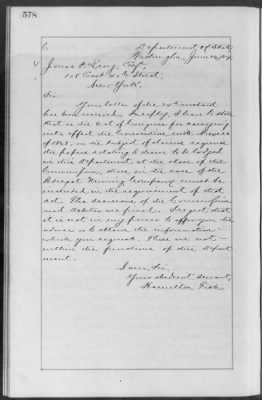 578
Department of State
Washington, June
James P.
108 East
New York.
Sir:
Your letter of the 20th instant
has been received. In reply, I have to state
that as the Act of Congress for carrying
into effect the Convention with Mexico
of 1868, on the subject of claims requires
the papers relating thereto to be lodged
in this Department at the close of the
Commission, those in the case of the
Mining Company must be
included in the requirement of that
Act. The decisions of the Commission
are final. I regret that
it is not in my power to afford you the
advice as to obtain the information
which you request. These are not
within the functions of this Depart
ment.
I am, Sir,
Your obedient servant,
Hamilton Fish